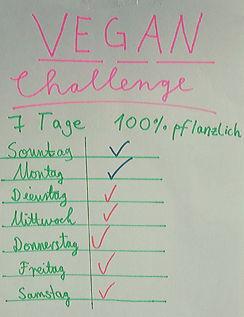 VEGAN
Challenge
7 Tage 100% pflanzlich
Sonntag ✓
Montag ✓
Dienstag ✓
Mittwoch ✓
Donnerstag ✓
Freitag ✓
Samstag ✓